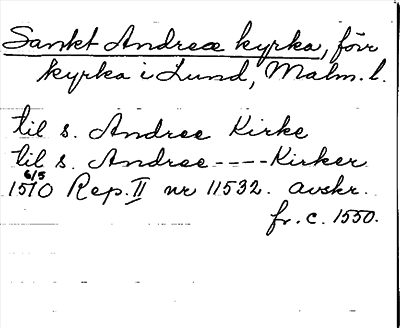 Sankt Andreæ kyrka, förr
kyrka i Lund, Malm. l.
til s. Andree Kirke
til s. Andree----Kirker
6/5
1510 Rep. II nr 11532. avskr.
fr. c. 1550.